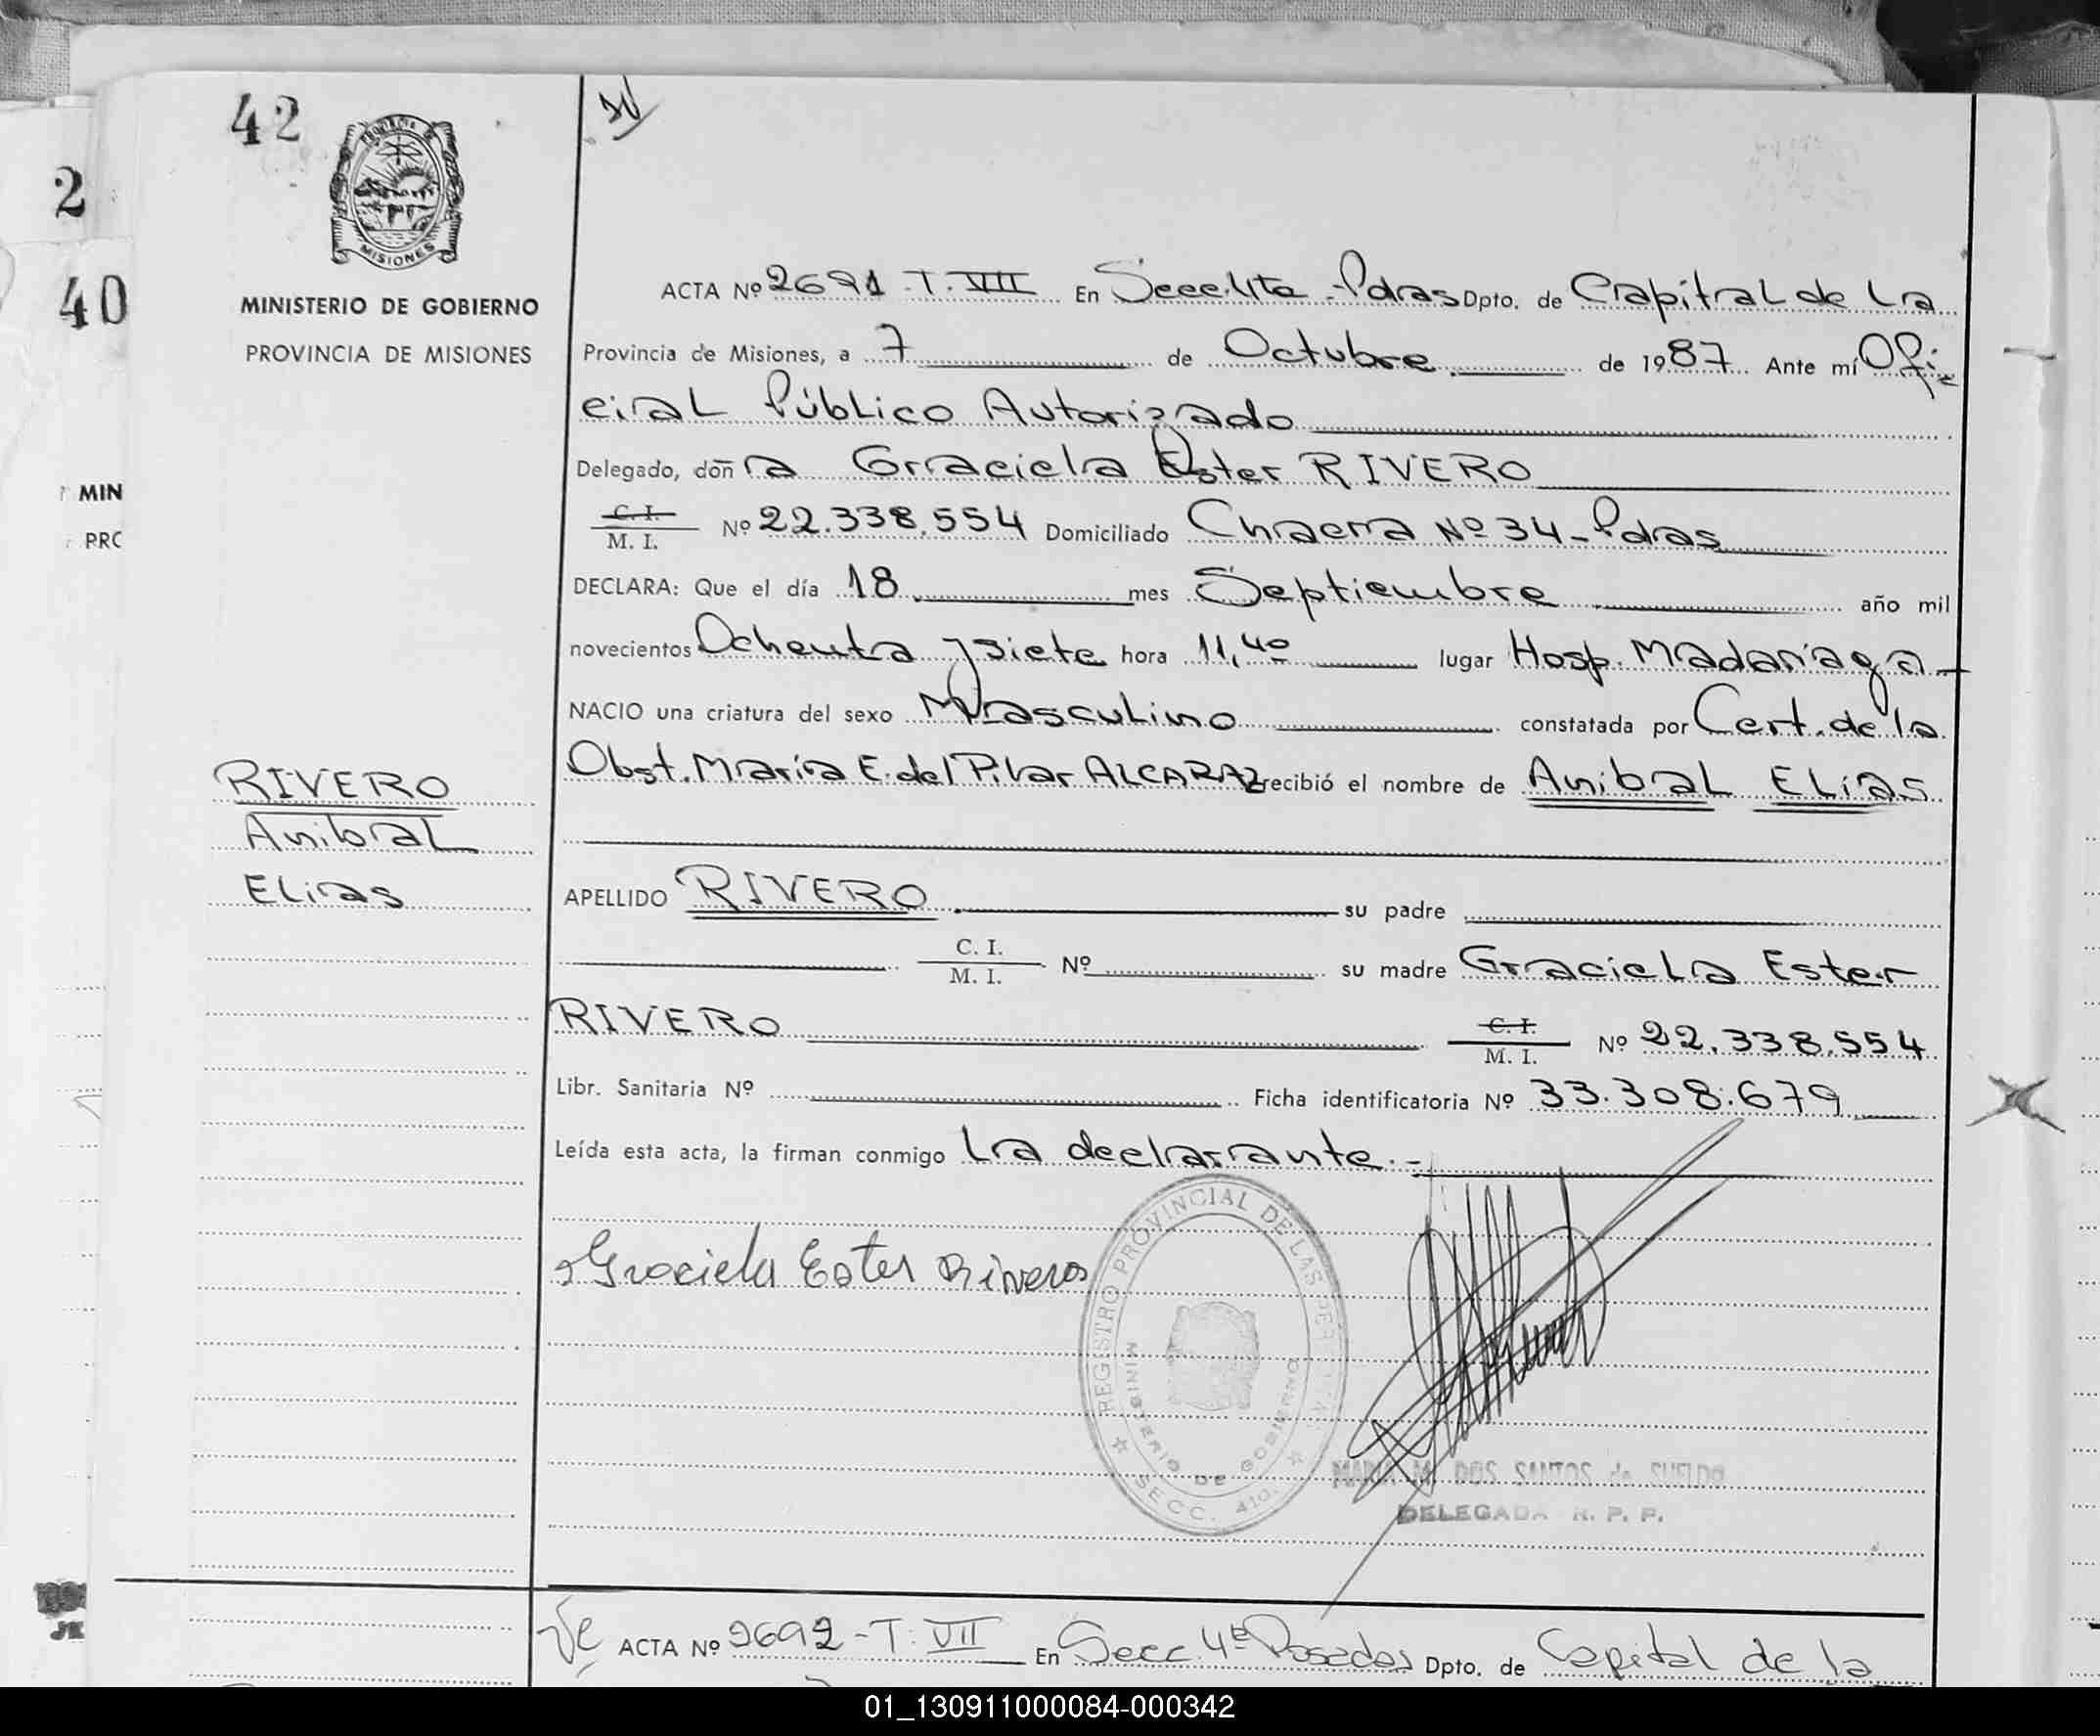 42
2
40
PROVINCIA DE
MISIONES
MINISTERIO DE GOBIERNO
PROVINCIA DE MISIONES
MIN
PRC
ACTA Nº 2691-T.VII En Secc.4ta-Pdas Dpto. de Capital de La
Provincia de Misiones, a 7 de Octubre de 1987 Ante mí Ofi=
cial Público Autorizado
Delegado, doña Graciela Ester RIVERO
C. I.
M. I. Nº 22.338.554 Domiciliado Chacra Nº 34-Pdas
DECLARA: Que el día 18 mes Septiembre año mil
novecientos Ochenta y siete hora 11,40 lugar Hosp. Madariaga-
NACIO una criatura del sexo Masculino constatada por Cert. de la
Obst. María E. del Pilar ALCARAZ recibió el nombre de Anibal Elias
RIVERO
Anibal
Elias
APELLIDO RIVERO su padre
C. I.
M. I. Nº su madre Graciela Ester
RIVERO C. I.
M. I. Nº 22.338.554
Libr. Sanitaria Nº Ficha identificatoria Nº 33.308.679
Leída esta acta, la firman conmigo La declarante.-
Graciela Ester Rivero
REGISTRO PROVINCIAL DE LAS
MINISTERIO DE GOBIERNO
SECC. 4ta.
MARIA M. DOS SANTOS de SUELDO
DELEGADA R. P. P.
ACTA Nº 2692-T. VII En Secc. 4ta Posadas Dpto. de Capital de la
01_130911000084-000342